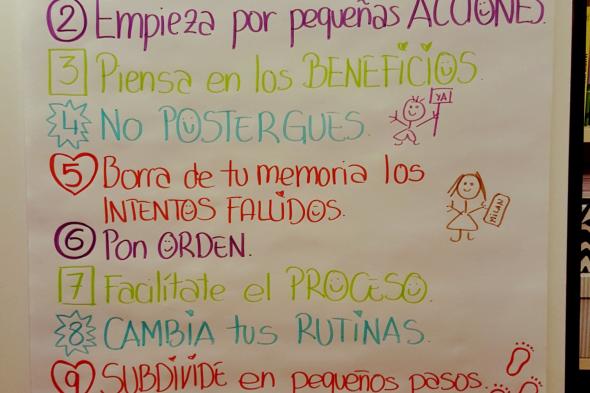 2 Empieza por pequeñas ACCIONES.
3 Piensa en los BENEFICIOS.
4 NO POSTERGUES.
YA
5 Borra de tu memoria los
INTENTOS FALLIDOS.
MILAN
6 Pon ORDEN.
7 Facilítate el PROCESO.
8 CAMBIA tus RUTINAS.
9 SUBDIVIDE en pequeños pasos.